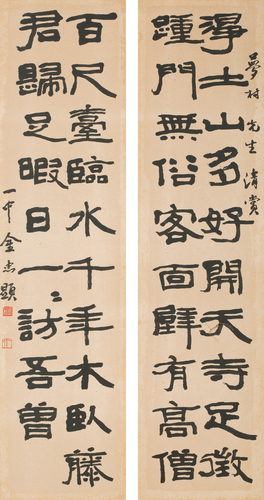 夢村先生清賞
得土山多好開天寺足徵
踵門無俗客面壁有高僧
百尺臺臨水千年木臥藤
君歸足暇日一一訪吾曾
一中金忠顯